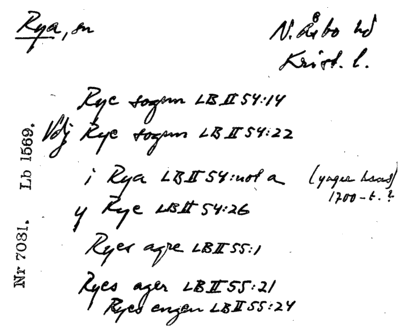 Rya, sn
N. Åsbo hd
Krist. l.
Rye sogum LB II 54:14
Vdj Rye sogum LB II 54:22
i Rya LB II 54: not a (yngre hand) 1700-t.?
y Rye LB II 54:26
Ryes agre LB II 55:1
Ryes ager LB II 55:21
Ryes engen LB II 55:24
Nr 7081. Lb 1569.